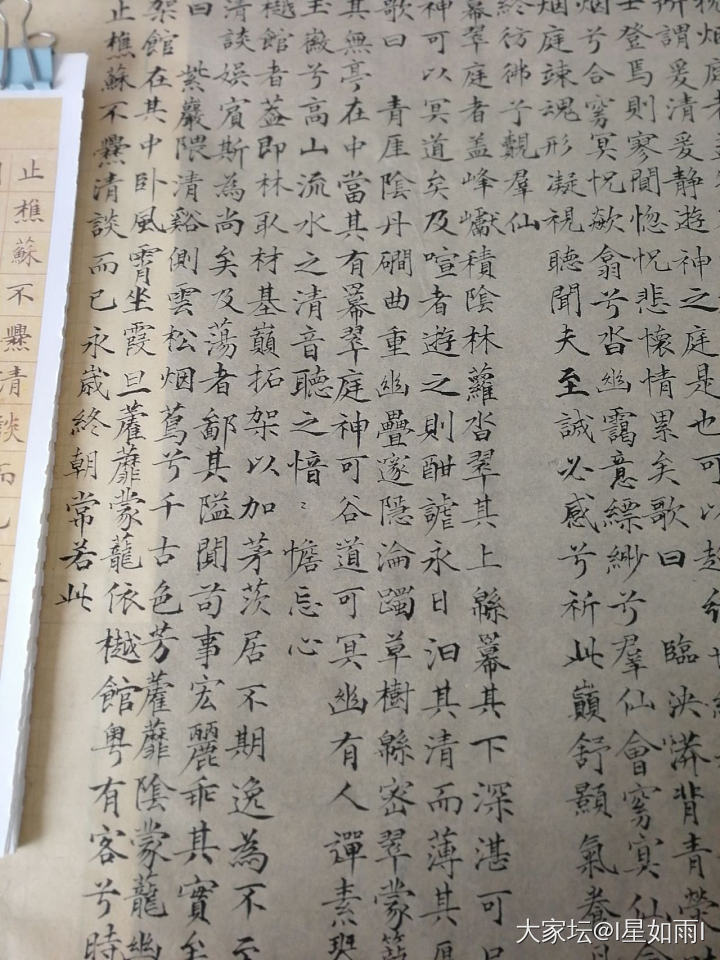 烟庭者
所謂爰清爰静遊神之庭是也可以超
士登焉則寥間惚怳悲懷情累矣歌曰 臨泱漭背青熒
烟兮合窅冥怳欻翕兮沓幽靄意縹緲兮羣仙會窅冥仙
烟庭竦魂形凝視聽聞夫至誠必感兮祈此巔舒顥氣養
終彷彿兮覿羣仙
幕翠庭者盖峰巘積陰林蘿沓翠其上緜幕其下深湛可
神可以冥道矣及喧者遊之則酣謔永日汩其清而薄其厚
歌曰 青厓陰丹磵曲重幽疊邃隱淪躅草樹緜密翠蒙籠
其無亭在中當其有幕翠庭神可谷道可冥幽有人彈素
玉徽兮高山流水之清音聽之愔ミ憺忘心
樾館者蓋即林取材基巔拓架以加茅茨居不期逸為不至
清談娛賓斯為尚矣及蕩者鄙其隘闃苟事宏麗乖其實矣
曰 紫巖隈清谿側雲松烟蔦兮千古色芳藿蘼陰蒙蘢幽
架館在其中卧風霄坐霞旦藿蘼蒙蘢依樾館粵有客兮時
止樵蘇不爨清談而已永歲終朝常若此
止樵蘇不爨清談而已
大家坛@I星如雨I